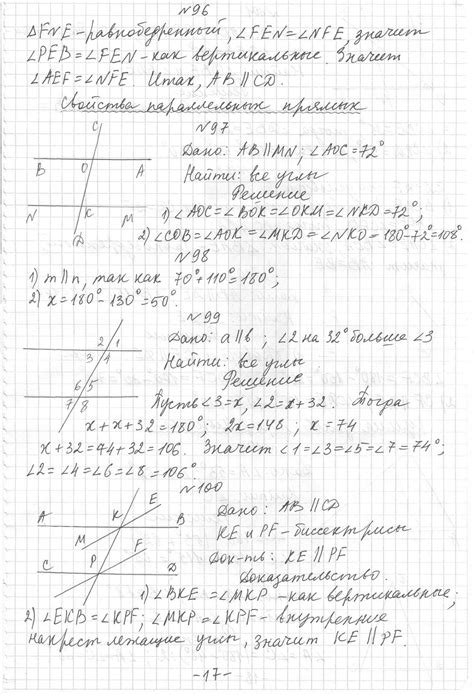 №96
ΔFNE - равнобедренный, ∠FEN = ∠NFE, значит
∠PEB = ∠FEN - как вертикальные. Значит
∠AEF = ∠NFE. Итак, AB ∥ CD.
Свойства параллельных прямых
№97
C
B O A
N K M
D
Дано: AB ∥ MN; ∠AOC = 72°
Найти: все углы
Решение
1) ∠AOC = ∠BOK = ∠OKM = ∠NKD = 72°;
2) ∠COB = ∠AOK = ∠MKD = ∠NKO = 180-72° = 108°.
№98
1) m ∥ n, так как 70° + 110° = 180°;
2) x = 180° - 130° = 50°.
№99
2 1
3 4
6 5
7 8
Дано: a ∥ b, ∠2 на 32° больше ∠3
Найти: все углы
Решение
Пусть ∠3 = x, ∠2 = x + 32. Тогда
x + x + 32 = 180°; 2x = 148; x = 74
x + 32 = 74 + 32 = 106. Значит ∠1 = ∠3 = ∠5 = ∠7 = 74°;
∠2 = ∠4 = ∠6 = ∠8 = 106°
№100
E
A K B
M
P F
C D
Дано: AB ∥ CD
KE и PF - биссектрисы
Док-ть: KE ∥ PF
Доказательство.
1) ∠BKE = ∠MKP - как вертикальные;
2) ∠EKB = ∠KPF; ∠MKP = ∠KPF - внутренние
накрест лежащие углы, значит KE ∥ PF.
-17-